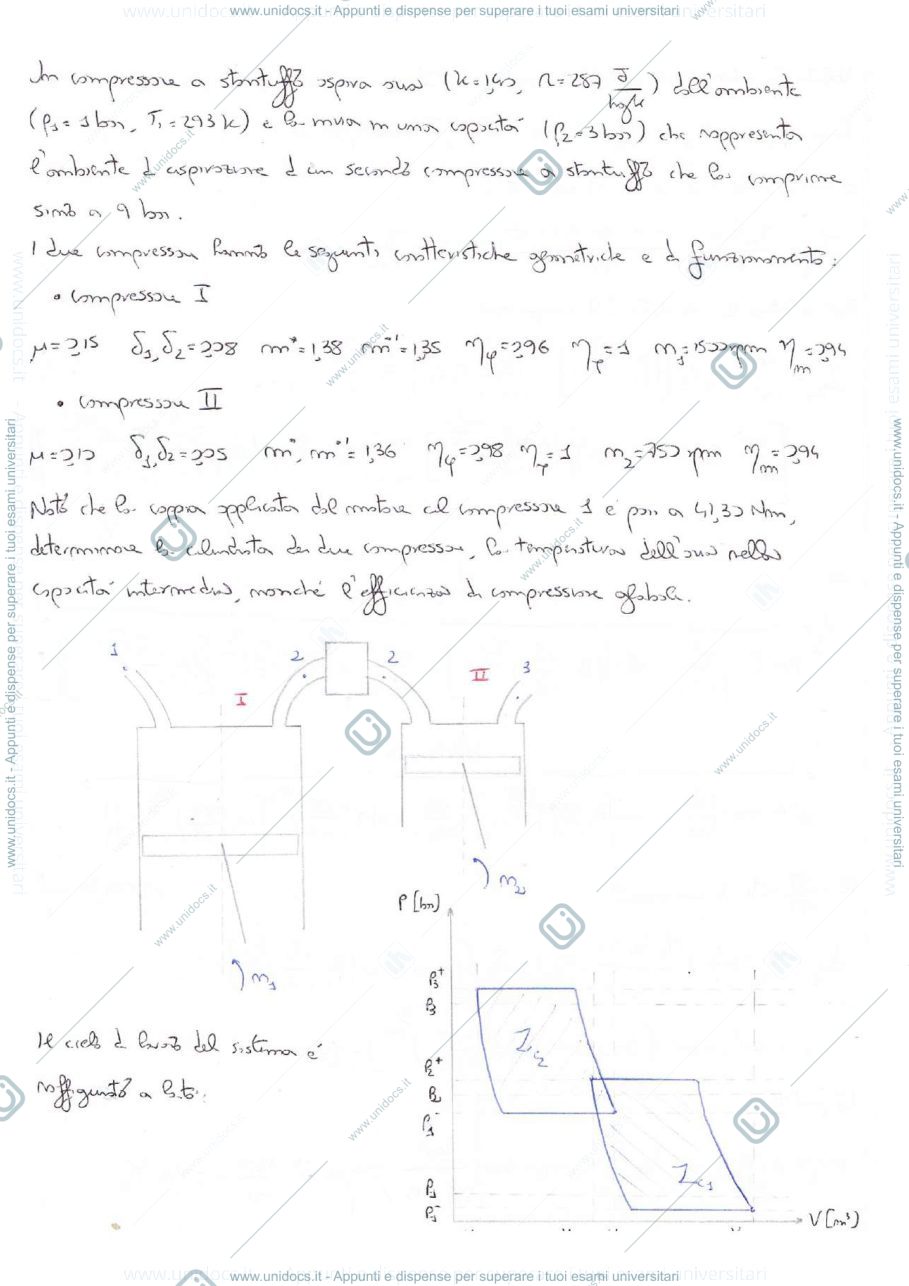 www.unidocs.it - Appunti e dispense per superare i tuoi esami universitari
Un compressore a stantuffo aspira aria (k=1,40, R=287 J/kgK) dall'ambiente
(p1 = 1 bar, T1 = 293 K) e la invia in una capacità (p2=3 bar) che rappresenta
l'ambiente di aspirazione di un secondo compressore a stantuffo che la comprime
sino a 9 bar.
I due compressori hanno le seguenti caratteristiche geometriche e di funzionamento:
• compressore I
μ=0,15 δ1, δ2=0,08 m*=1,38 m*'=1,35 ηφ=0,96 ητ=1 n1=1500 rpm ηm=0,94
• compressore II
μ=0,10 δ1, δ2=0,05 m*, m*'=1,36 ηφ=0,98 ητ=1 n2=750 rpm ηm=0,94
Noto che la coppia applicata dal motore al compressore 1 è pari a 41,30 Nm,
determinare la cilindrata dei due compressori, la temperatura dell'aria nella
capacità intermedia, nonché l'efficienza di compressione globale.
1 2 2 3
I II
n2
n1
Il ciclo di lavoro del sistema è
raffigurato a lato:
P [bar]
p3+
p3
p2+
p2
p1-
p1
p1-
Lc2
Lc1
V [m³]
www.unidocs.it - Appunti e dispense per superare i tuoi esami universitari